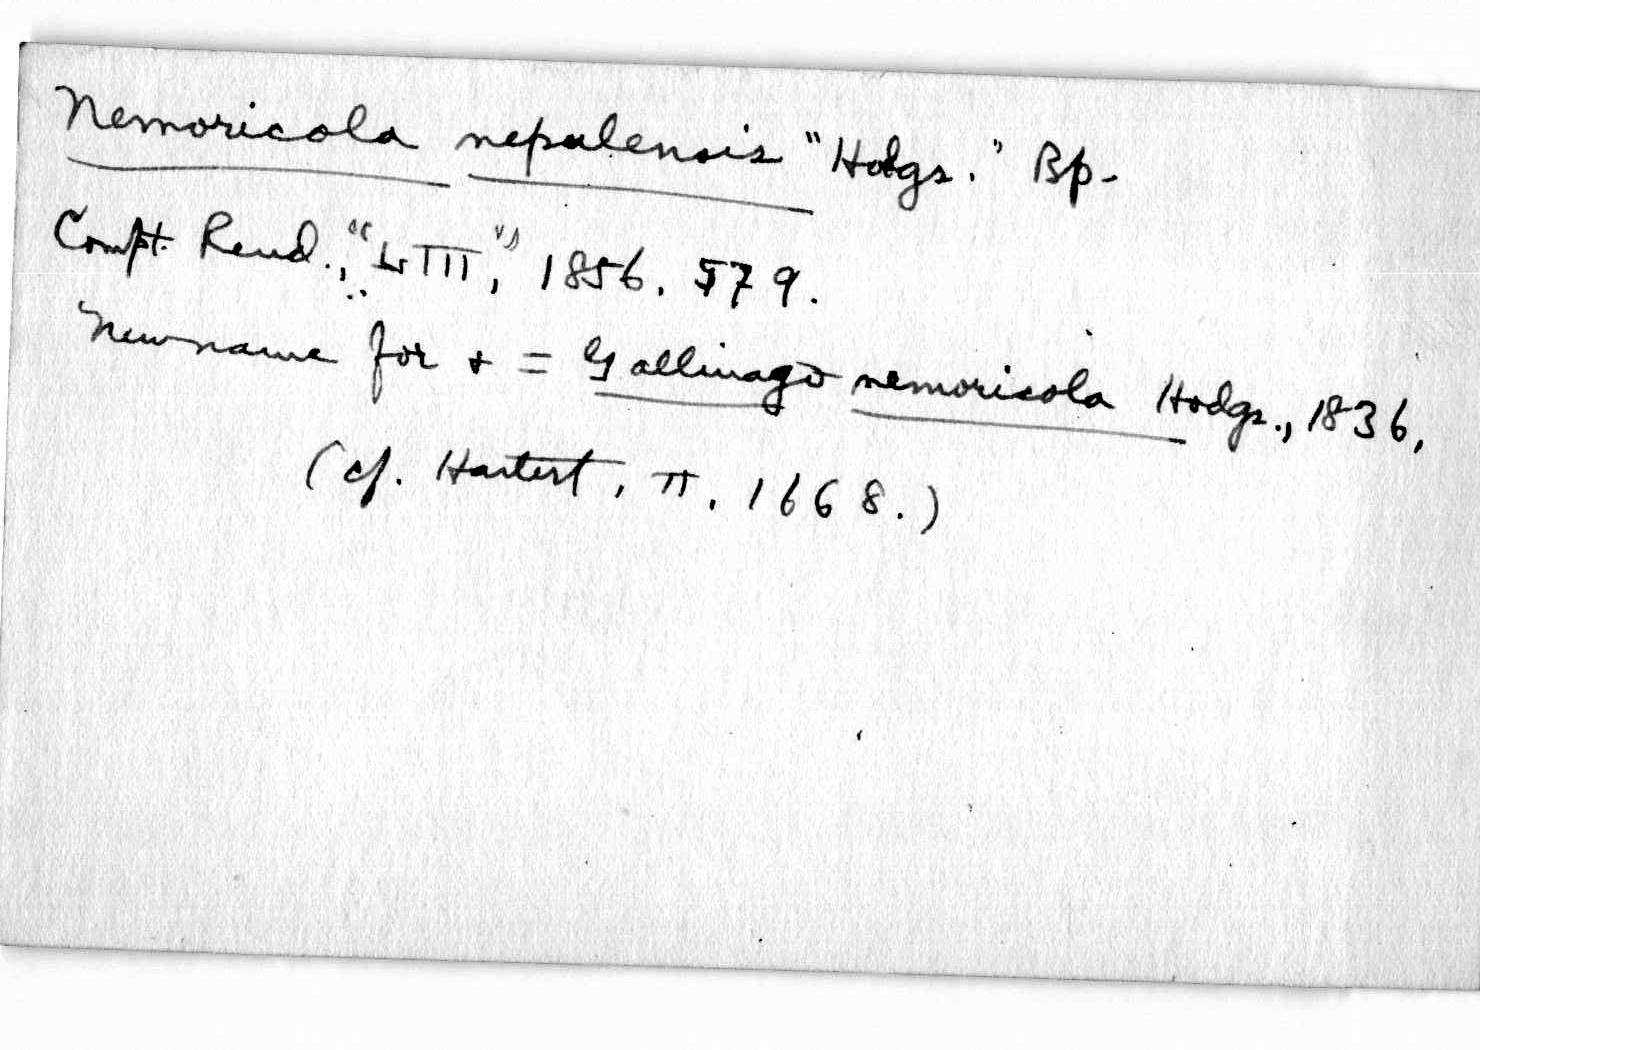 Nemoricola nepalensis "Hodgs." Bp.
Compt. Rend., "LIII," 1856, 579.
New name for & = Gallinago nemoricola Hodgs., 1836,
(cf. Hartert, II, 1668.)